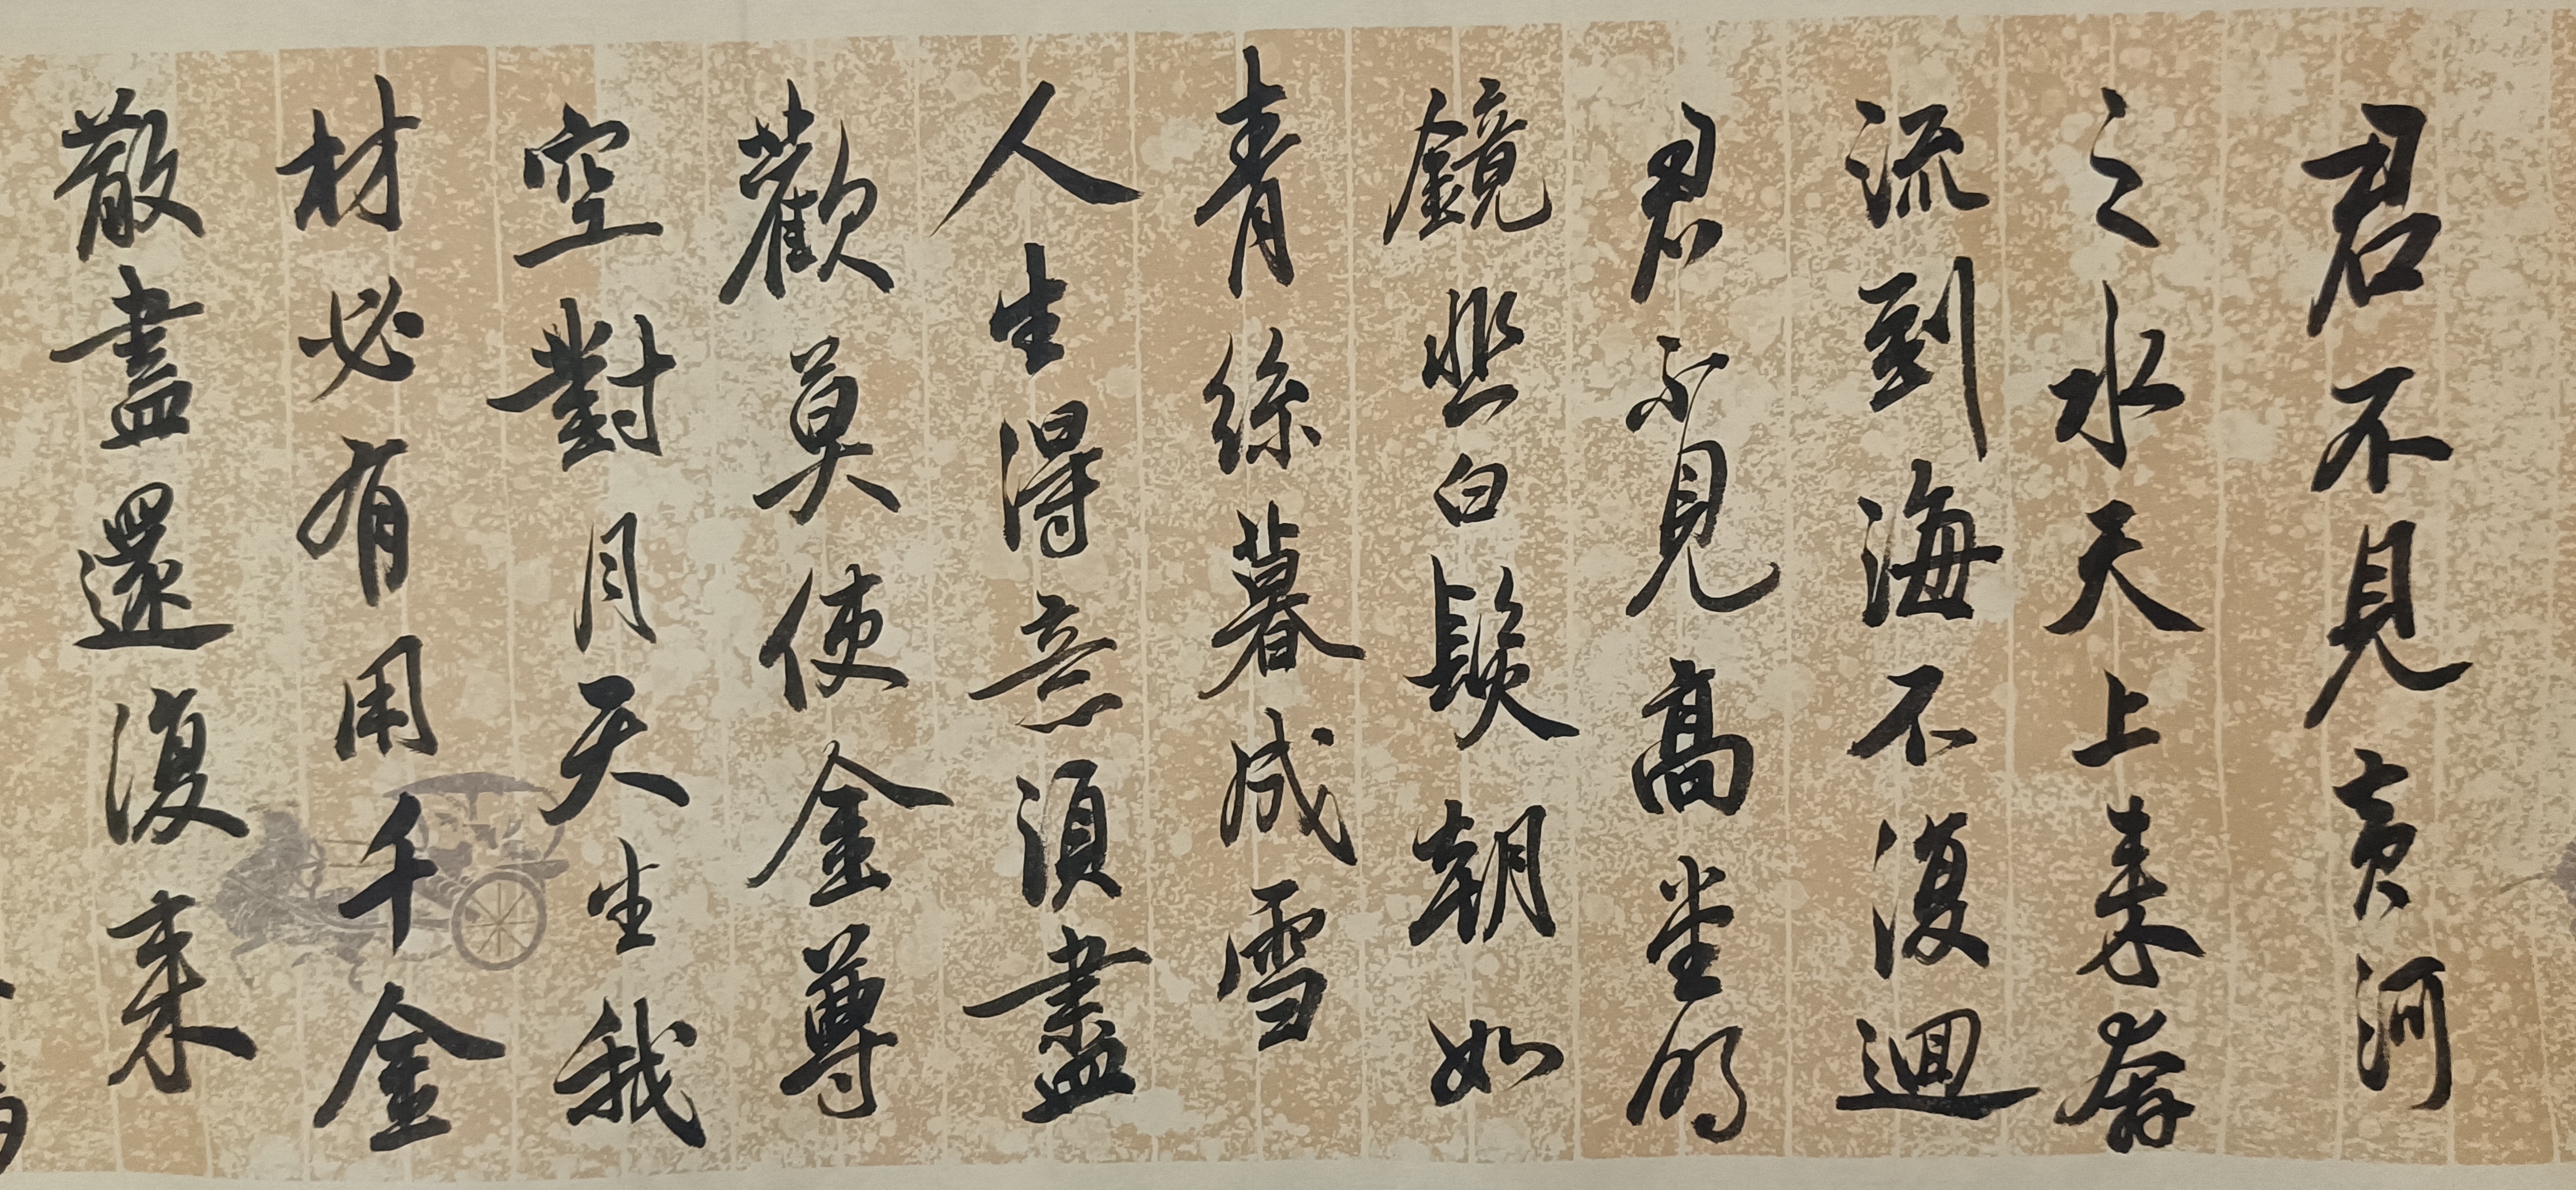 君不見黃河
之水天上来奔
流到海不復迴
君不見高堂明
鏡悲白髮朝如
青絲暮成雪
人生得意須盡
歡莫使金尊
空對月天生我
材必有用千金
散盡還復来